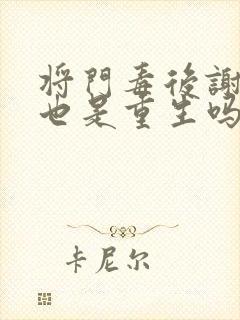 将門毒後謝
也是重生吗
卡尼尔